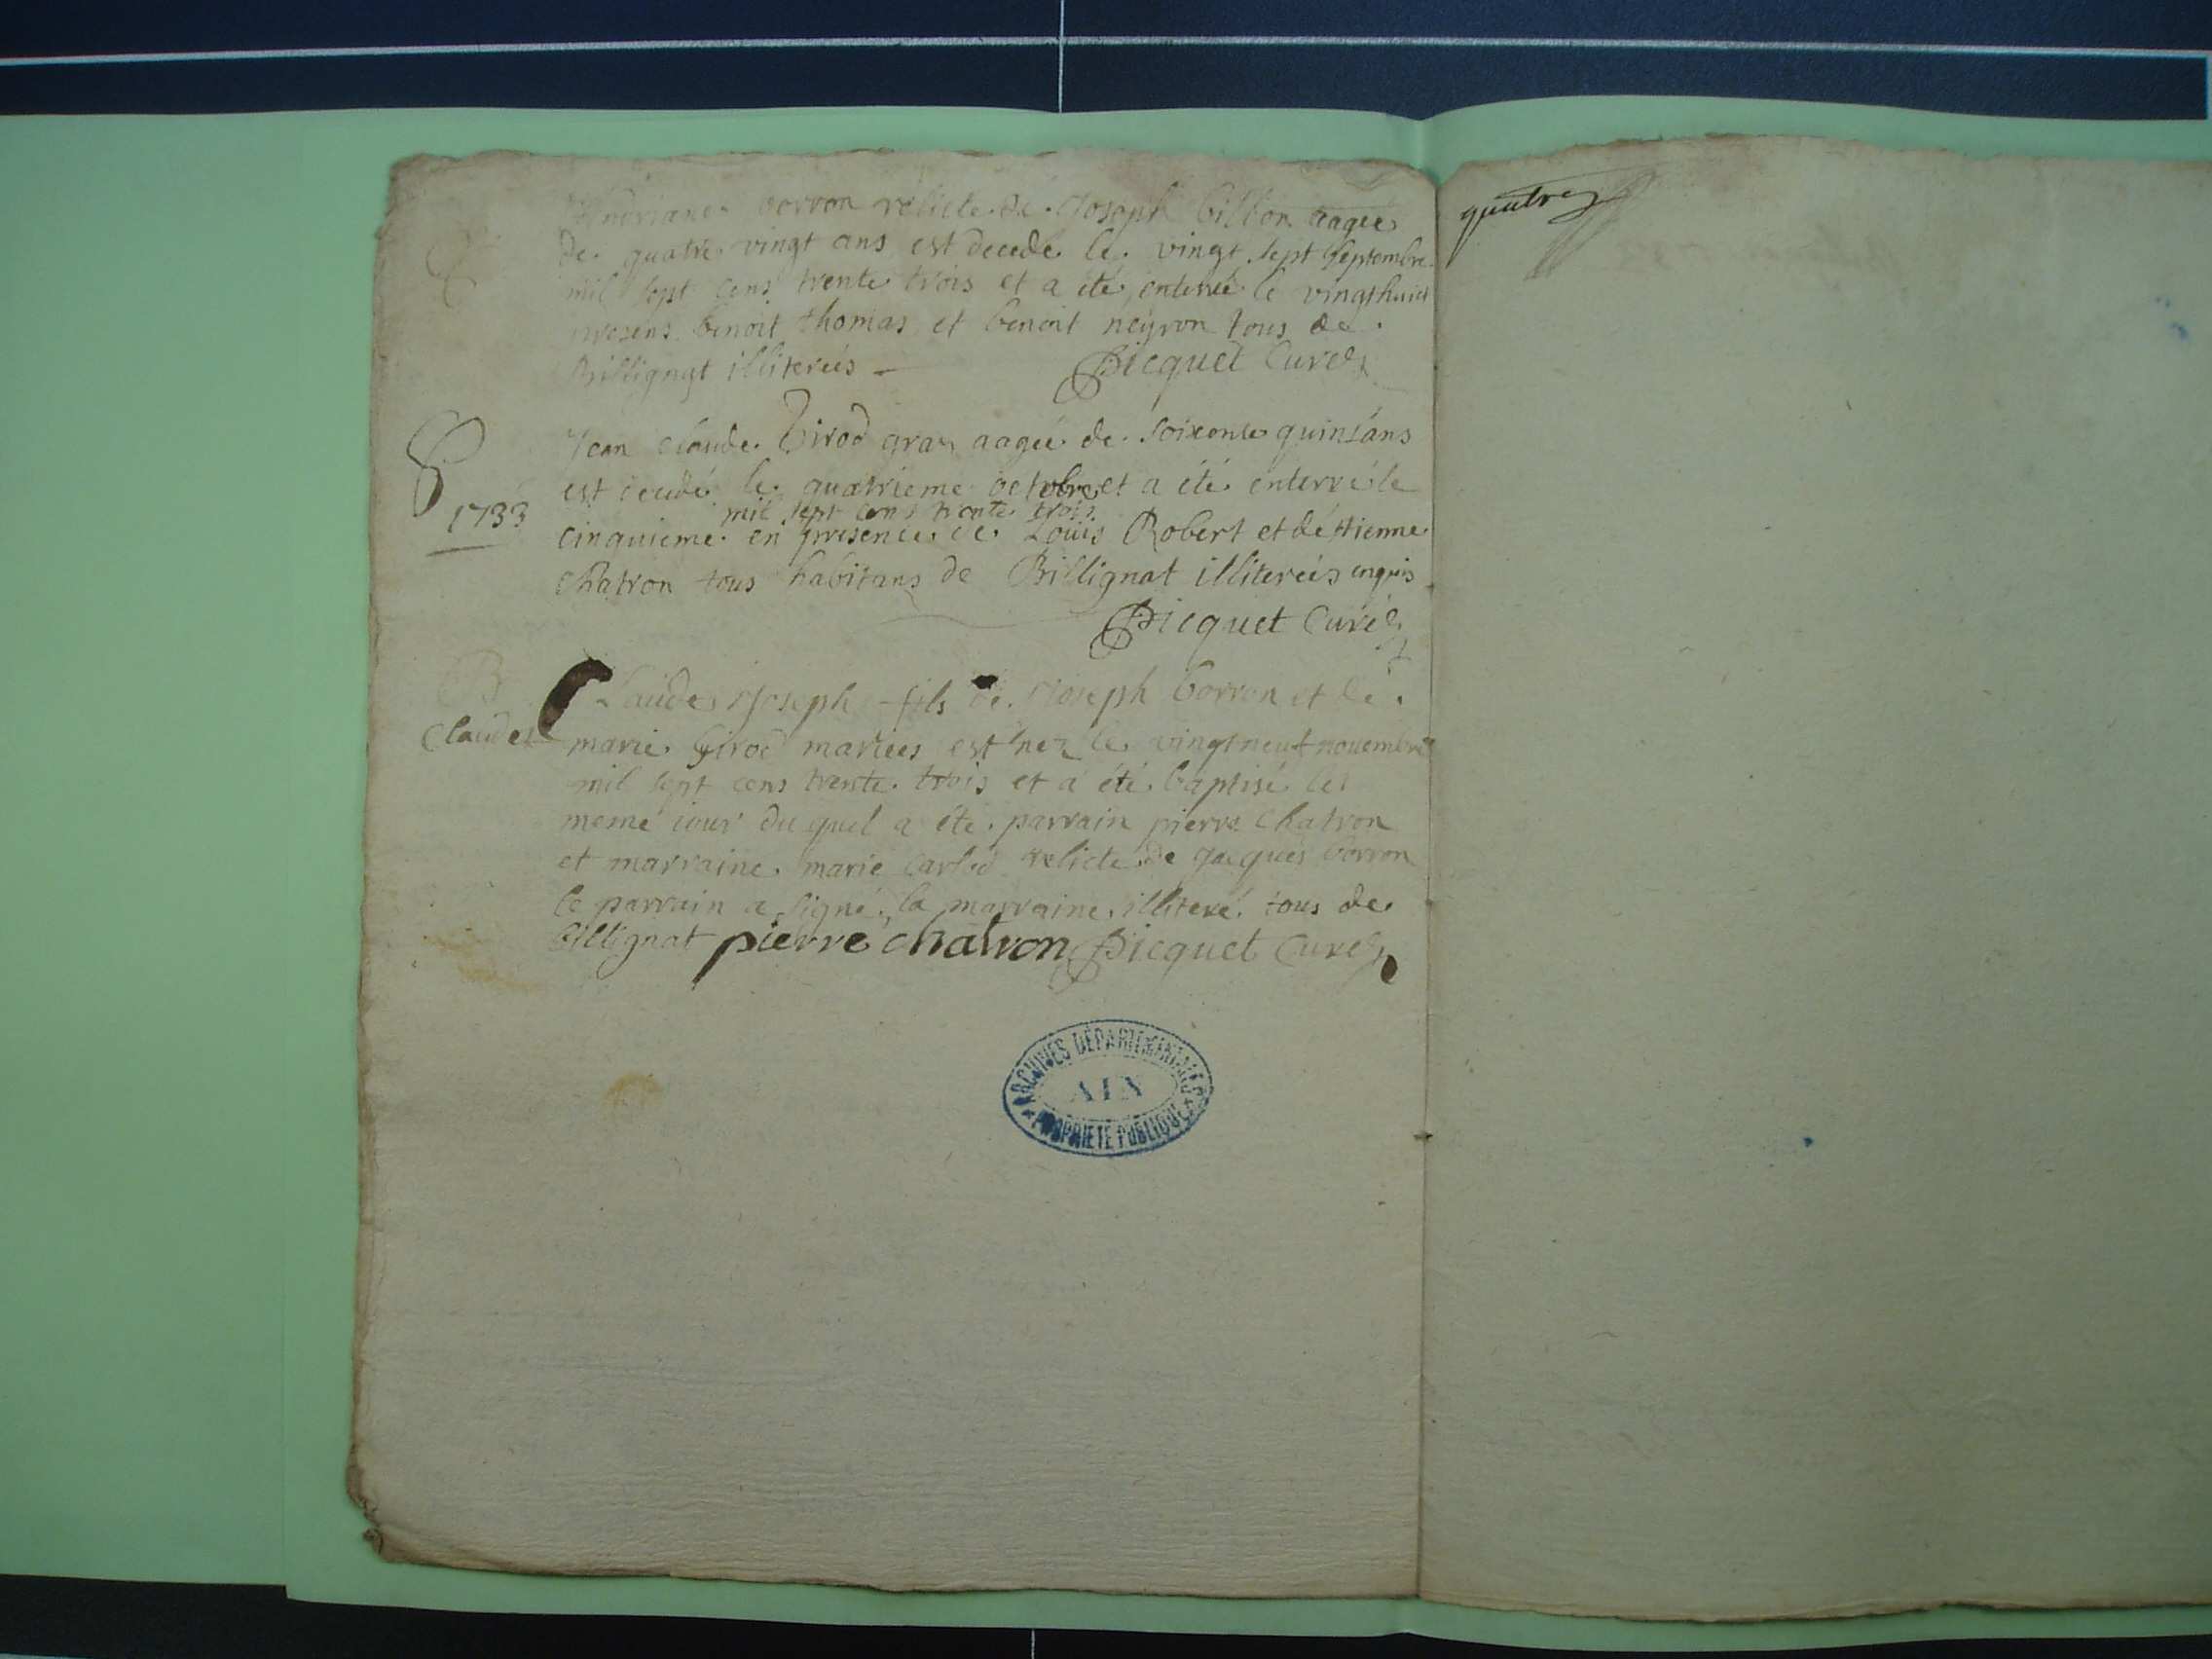 Andriane borron relicte de Joseph billion aagee
de quatre vingt ans est decede le vingt sept septembre
mil sept cens trente trois et a été enterrée le vingthuict
presens benoit thomas et benoit neyron tous de
Billignat illiterés
Picquet Curé
Jean claude Girod gras aagée de soixente quinsans
est decedé le quatrieme octobre et a été enterré le
1733
mil sept cens trente trois
cinquieme en presence de Louis Robert et d'étienne
Chatron tous habitans de Billignat illiterées enquis
Picquet Curé
Claude Joseph fils de Joseph borron et de
Claude
marie Girod mariées est nez le vingt neuf novembre
mil sept cens trente trois et a été baptisé le
meme iour du quel a été parrain pierre Chatron
et marraine marie Carlod relicte de Jacques borron
le parrain a signé la marraine illiteré tous de
Billignat pierre chatron Picquet Curé
ARCHIVES DÉPARTEMENTALES
AIN
PROPRIÉTÉ PUBLIQUE
quatre